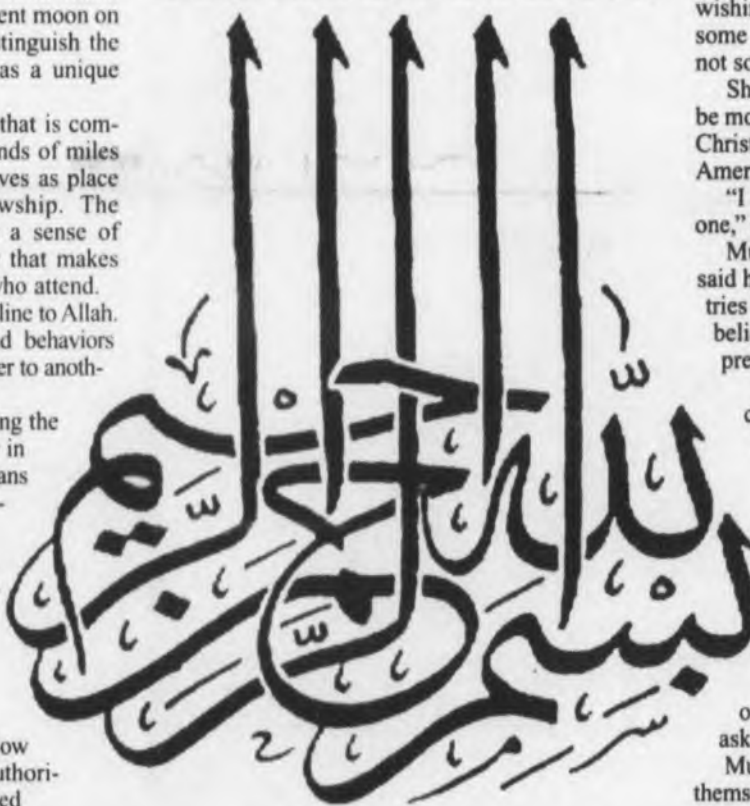 ent moon on
tinguish the
as a unique
that is com-
nds of miles
ves as place
wship. The
a sense of
that makes
ho attend.
line to Allah.
d behaviors
er to anoth-
ng the
in
ans
-
ow
uthori-
ed
بسم الله الرحمن الرحيم
wishin
some
not so
Sh
be mo
Christ
Amer
“I
one,”
Mu
said h
tries
beli
pre
c
o
ask
Mu
thems